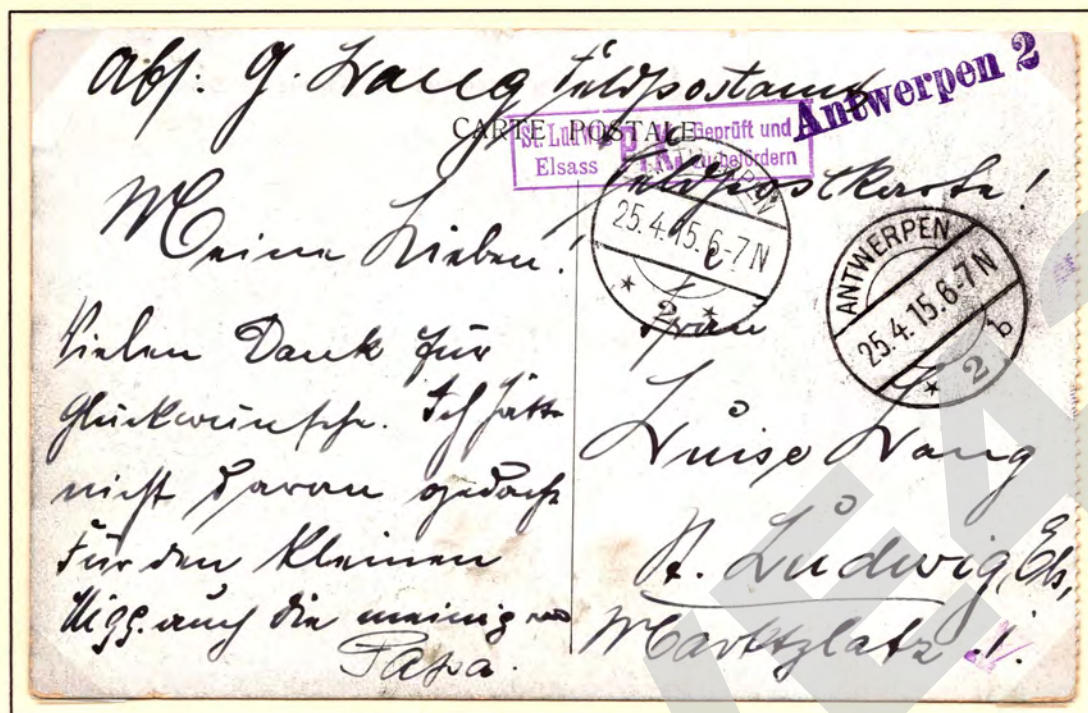 Abs. G. Lang Feldpostamt
Antwerpen 2
CARTE POSTALE
St. Ludwig P.K. Geprüft und
Elsass zu befördern
Feldpostkarte!
ANTWERPEN
25.4.15.6-7N
ANTWERPEN
25.4.15.6-7N
* 2 b
Meine Lieben!
Vielen Dank für
Glückwünsche. Ich hätte
nicht daran gedacht
Für den kleinen
auch die
Papa.
Frau
Luise Lang
St. Ludwig, Els,
Marktplatz 1.